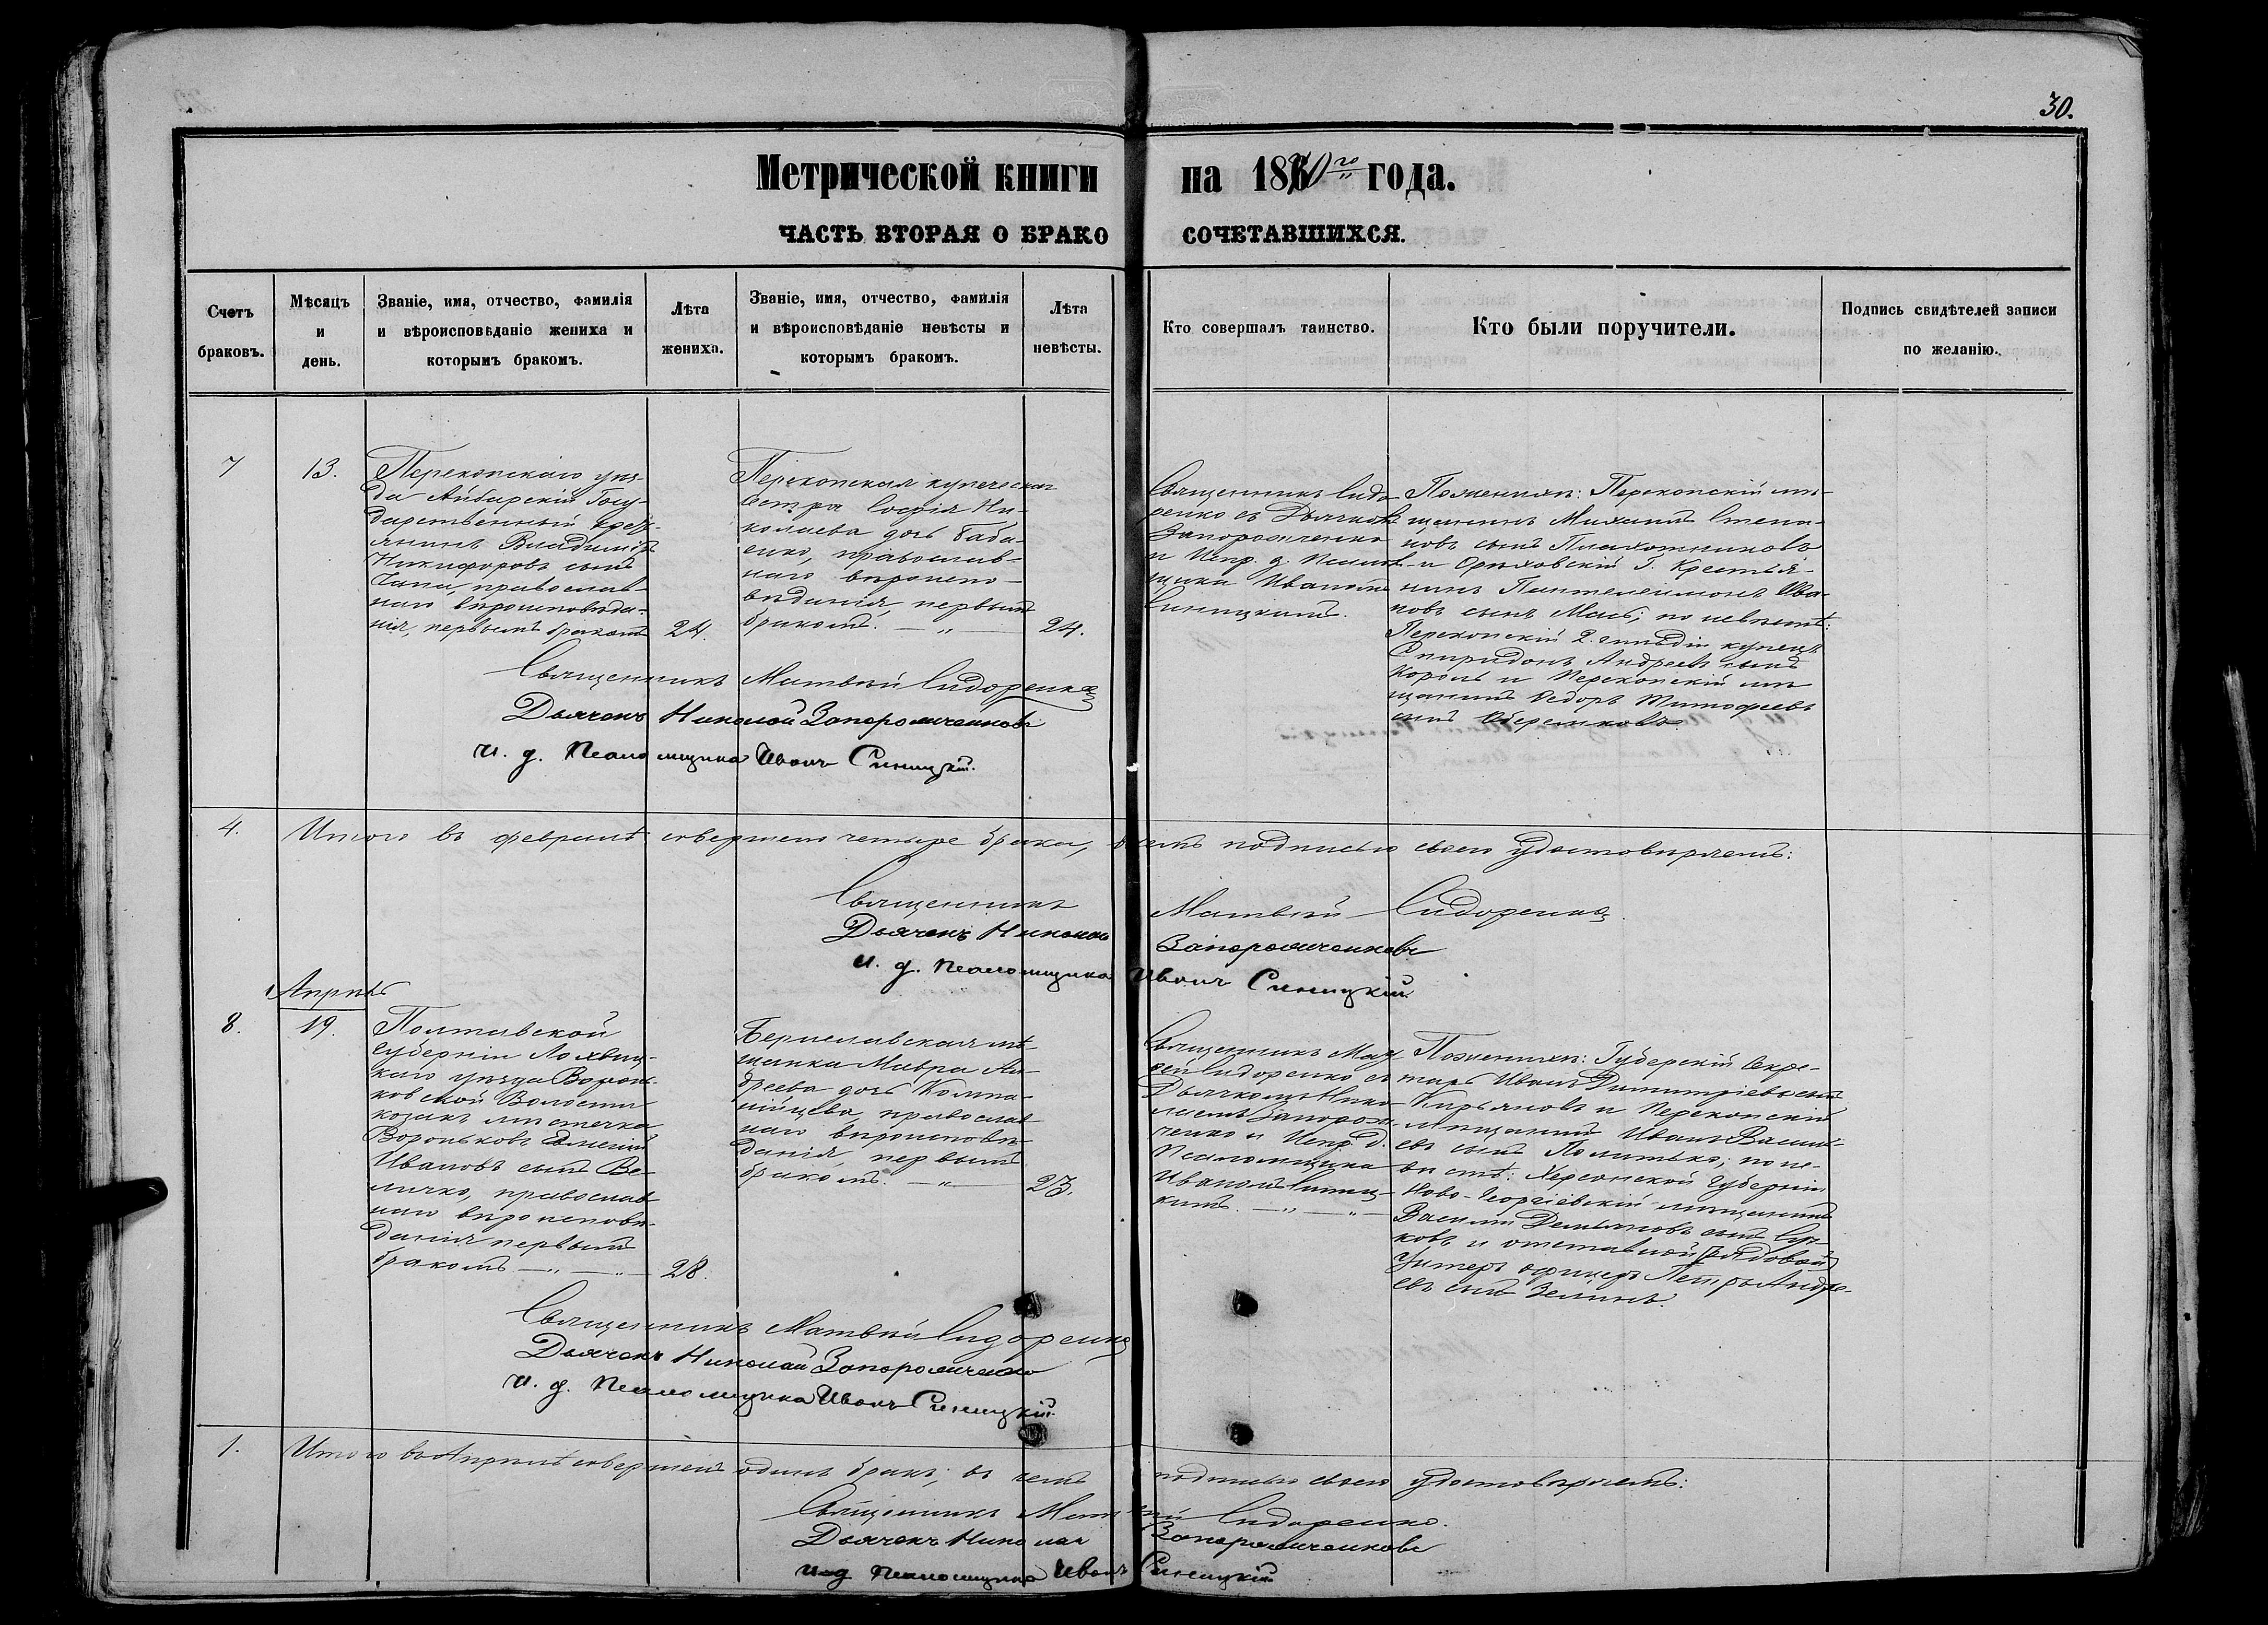 30.
Метрической книги на 1870го года.
ЧАСТЬ ВТОРАЯ О БРАКО СОЧЕТАВШИХСЯ.
Счетъ браковъ.
Мѣсяцъ и день.
Званіе, имя, отчество, фамилія
и вѣроисповѣданіе жениха и
которымъ бракомъ.
Лѣта жениха.
Званіе, имя, отчество, фамилія
и вѣроисповѣданіе невѣсты и
которымъ бракомъ.
Лѣта невѣсты.
Кто совершалъ таинство.
Кто были поручители.
Подпись свидѣтелей записи
по желанію.
7
13.
Перекопскаго уѣз-
да Айбарскій Госу-
дарственный крест-
янинъ Владиміръ
Никифоровъ сынъ
Чапа, православ-
наго вѣроисповѣда-
нія, первымъ бракомъ
24.
Перекопская купеческая
сестра Софія Ни-
колаева дочь Баба-
енко, православ-
наго вѣроиспо-
вѣданія, первымъ
бракомъ. — „ —
24.
Священникъ Сидо-
ренко съ Дьячкомъ
Запорожченко
и Испр. д. Псалом-
щика Иваномъ
Синицкимъ.
По женихѣ: Перекопскій мѣ-
щанинъ Михаилъ Степа-
новъ сынъ Плахотниковъ
и Орѣховскій Г. Крестья-
нинъ Пантелеймонъ Ива-
новъ сынъ Мась; по невѣстѣ:
Перекопскій 2. гильдіи купецъ
Спиридонъ Андреевъ сынъ
Король и Перекопскій мѣ-
щанинъ Федоръ Тимофеевъ
сынъ
Священникъ Матвѣй Сидоренко
Дьячекъ Николай Запорожченковъ
и. д. Псаломщика Иванъ Синицкій.
4.
Итого въ февралѣ совершено четыре брака, въ чемъ подписью своею удостовѣряемъ:
Священникъ Матвѣй Сидоренко
Дьячекъ Николай Запорожченковъ
и. д. Псаломщика Иванъ Синицкій
Апрѣль
8.
19.
Полтавской
Губерніи Лохвиц-
каго уѣзда Воронь-
ковской Волости
козакъ мѣстечка
Вороньковъ
Ивановъ сынъ Ве-
личко, православ-
наго вѣроисповѣ-
данія первымъ
бракомъ — „ — „ —
28.
Бериславская мѣ-
щанка Мавра Ан-
дреева дочь Компа-
нійцева, православ-
наго вѣроисповѣ-
данія, первымъ
бракомъ. — „ —
23.
Священникъ Мат-
ѳей Сидоренко съ
Дьячкомъ Нико-
лаемъ Запорож-
ченко и Испр. д.
Псаломщика
Иваномъ Синиц-
кимъ. — „ — „ —
По женихѣ: Губерскій Секре-
тарь Иванъ Димитріевъ сынъ
Кирьяновъ и Перекопскій
мѣщанинъ Иванъ Васильи-
евъ сынъ Политько; по не-
вѣстѣ: Херсонской Губерніи
Ново-Георгіевскій мѣщанинъ
Василій Демьяновъ сынъ
ковъ и отставной рядовой
Унтеръ офицеръ Петръ Андре-
евъ сынъ Зелинъ.
Священникъ Матвѣй Сидоренко
Дьячекъ Николай Запорожченко
и. д. Псаломщика Иванъ Синицкій.
1.
Итого въ Апрѣлѣ совершенъ одинъ бракъ; въ чемъ подписью своею удостовѣряемъ:
Священникъ Матвѣй Сидоренко.
Дьячекъ Николай Запорожченковъ
и д Псаломщика Иванъ Синицкій